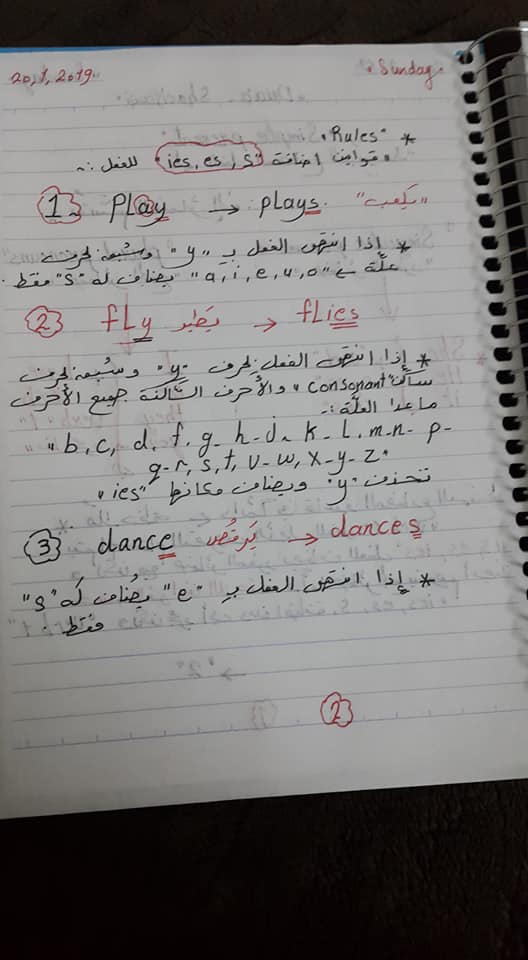 20,1,2019.. • Sunday •
* "Rules"
• قوانين اضافة "ies, es, s" للفعل :~
1~ PLay → plays. "يلعب"
* إذا انتهى الفعل بـ "y" وسُبقه بحرف
علّة ے "a, i, e, u, o" يضاف له "s" فقط.
2 fLy يطير → fLies
* إذا انتهى الفعل بحرف "y" وسُبعه بحرف
ساكن "consonant" والأحرف الساكنة جميع الأحرف
ما عدا العلّة :~
"b, c, d, f, g- h-J- k- L, m-n- p-
q-r, s, t, v-w, x-y-z"
تحذف "y" ويضاف مكانها "ies"
3 dance يرقص → dances
* إذا انتهى الفعل بـ "e" يضاف له "s"
فقط.
2